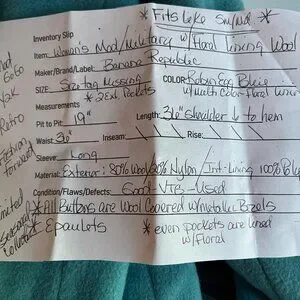 * Fits Like Sm/Md *
Inventory Slip
Item: Women's Mod/Military w/Floral Lining Wool
Maker/Brand/Label: Banana Republic
SIZE: Size tag Missing
COLOR: Robin Egg Blue
* 2 Ext. Pockets
w/Multi Color Floral Liner
Measurements
Pit to Pit: 19"
Length: 36" shoulder ↓ to hem
Waist: 36"
Inseam:
Rise:
Sleeve: Long
Material: Exterior: 80% Wool/20% Nylon / Int-Lining 100% Poly
Condition/Flaws/Defects: Good-VTG-Used
* All Buttons are Wool Covered w/Metallic Bezels
* Epaulets
* even pockets are lined
w/Floral
Mod
GoGo
Y2K
Retro
Fashion
forward
Limited
seasonal